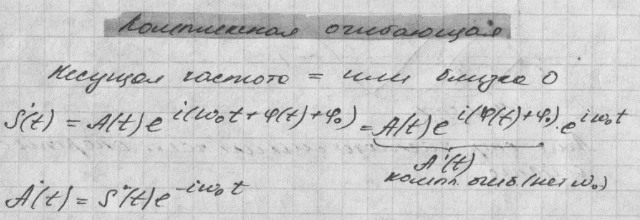 Комплексная огибающая
Несущая частота = или близка 0
Ṡ(t) = A(t)e^{i(ω₀t+φ(t)+φ₀)} = A(t)e^{i(φ(t)+φ₀)} · e^{iω₀t}
Ȧ(t)
компл. огиб. (нет ω₀)
Ȧ(t) = Ṡ(t)e^{-iω₀t}